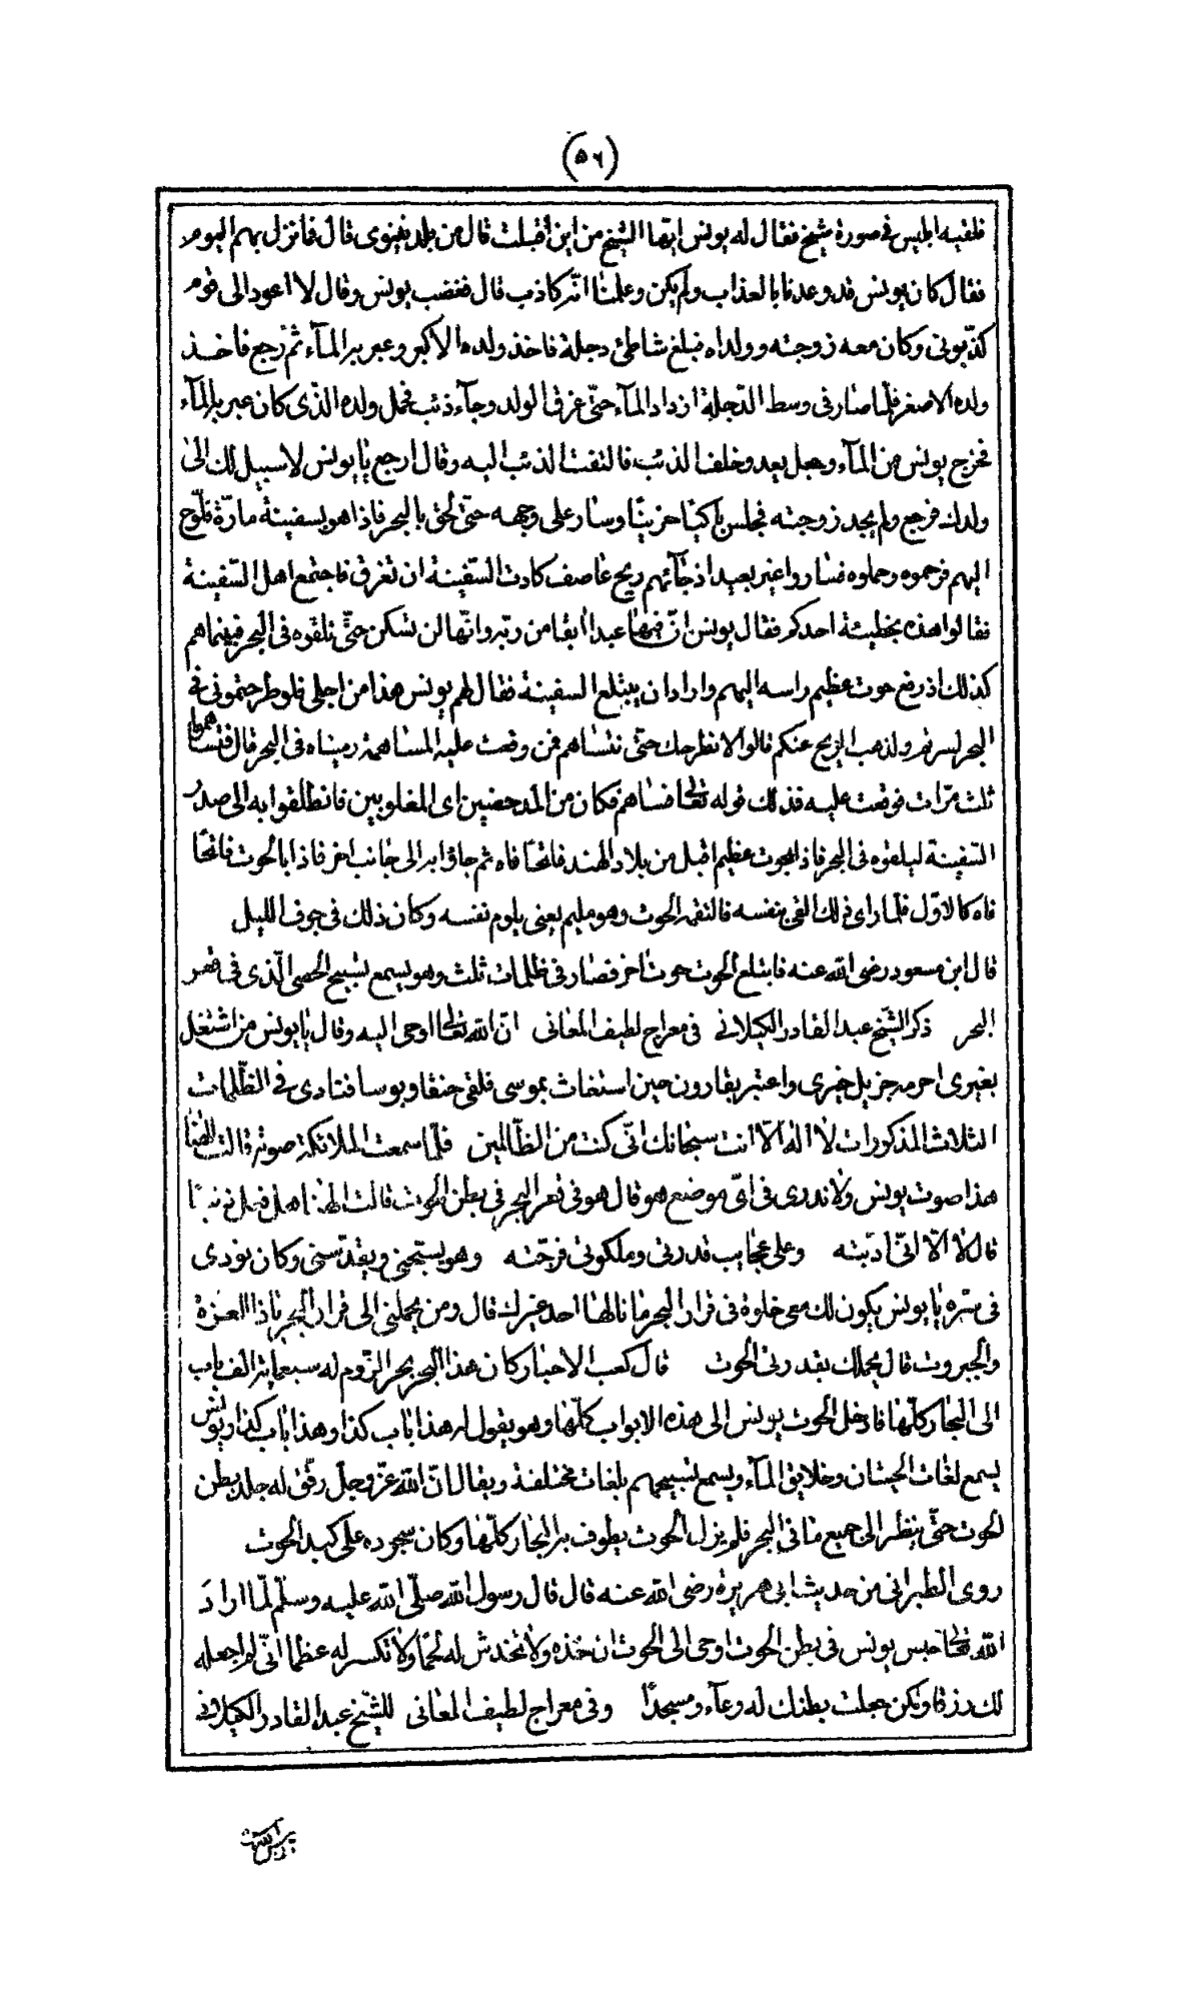 (٥٦)
فلقيه ابليس فى صورة شيخ فقال له يونس ايّها الشيخ من اين اقبلت قال من بلد نينوى قال فانزل بهم اليوم
فقال كان يونس قد وعدنا بالعذاب ولم يكن وعلمنا انّه كاذب قال فغضب يونس وقال لا اعود الى قوم
كذّبونى وكان معه زوجته وولداه فبلغ شاطئ دجلة فاخذ ولده الاكبر وعبر به المآء ثم رجع فاخذ
ولده الاصغر فلمّا صار فى وسط الدّجلة ازداد المآء حتّى غرق الولد وجآء ذئب فحمل ولده الذى كان عبر به المآء
فخرج يونس من المآء وجعل يعدو خلف الذئب فالتفت الذئب اليه وقال ارجع يا يونس لا سبيل لك الى
ولدك فرجع ولم يجد زوجته فجلس باكيا حزينا وسار على وجهه حتى لحق بالبحر فاذا هو بسفينة مارّة فلوّح
اليهم فرحموه وحملوه فساروا غير بعيد اذ جآئهم ريح عاصف كادت السّفينة ان تغرق فاجتمع اهل السّفينة
فقالوا هذه بخطيئة احدكم فقال يونس انّ فيها عبدا ابقا من ربّه وانّها لن تسكن حتّى تلقوه فى البحر فبينما هم
كذلك اذ رفع حوت عظيم راسه اليهم واراد ان يبتلع السفينة فقال لهم يونس هذا من اجلى فلو طرحتمونى فى
البحر لسرتم ولذهب الريح عنكم قالوا لا نطرحك حتّى نتساهم فمن وقعت عليه المساهمة رميناه فى البحر قال فتساهموا
ثلث مرّات فوقعت عليه فذلك قوله تعالى فساهم فكان من المدحضين اى المغلوبين فانطلقوا به الى صدر
السّفينة ليلقوه فى البحر فاذا بحوت عظيم اقبل من بلاد الهند فاتحا فاه ثم جاؤا به الى جانب اخر فاذا بالحوت فاتحا
فاه كالاوّل فلما راى ذلك القى بنفسه فالتقمه الحوت وهو مليم يعنى يلوم نفسه وكان ذلك فى جوف الليل
قال ابن مسعود رضى الله عنه فابتلع الحوت حوت اخر فصار فى ظلمات ثلث وهو يسمع تسبيح الحصى الّذى فى قعر
البحر ذكر الشّيخ عبد القادر الكيلانى فى معراج لطيف المعانى انّ الله تعالى اوحى اليه وقال يا يونس من اشتغل
بغيرى احرمه جزيل خيرى واعتبر بقارون حين استغاث بموسى فلقى حنقا وبوسا فنادى فى الظّلمات
الثلاث المذكورات لا اله الّا انت سبحانك انّى كنت من الظّالمين فلمّا سمعت الملائكة صوته قالت الهنا
هذا صوت يونس ولا ندرى فى اىّ موضع هو قال هو فى قعر البحر فى بطن الحوت قالت الهنا هل فعل ذنبا
قال لا الّا انّى ادّبته وعلى عجايب قدرتى وملكوتى فرجّته وهو يسبّحنى ويقدّسنى وكان نودى
فى سرّه يا يونس يكون لك معى خلوة فى قرار البحر ما نالها احد غيرك قال ومن يحملنى الى قرار البحر يا ذا العزة
والجبروت قال يحملك بقدرتى الحوت قال كعب الاحبار كان هذا البحر بحر الرّوم له سبعماية الف باب
الى البحار كلّها فادخل الحوت يونس الى هذه الابواب كلّها وهو يقول له هذا باب كذا وهذا باب كذا ويونس
يسمع لغات الحيتان وخلايق المآء ويسمع تسبيحهم بلغات مختلفة ويقال انّ الله عزّ وجلّ رقّق له جلد بطن
الحوت حتّى ينظر الى جميع ما فى البحر فلم يزل الحوت يطوف به البحار كلّها وكان سجوده على كبد الحوت
روى الطبرانى من حديث ابى هريرة رضى الله عنه قال قال رسول الله صلّى الله عليه وسلّم لمّا اراد
الله تعالى حبس يونس فى بطن الحوت اوحى الى الحوت ان خذه ولا تخدش له لحما ولا تكسر له عظما انّى لم اجعله
لك رزقا ولكن جعلت بطنك له وعآء ومسجدًا وفى معراج لطيف المعانى للشّيخ عبد القادر الكيلانى